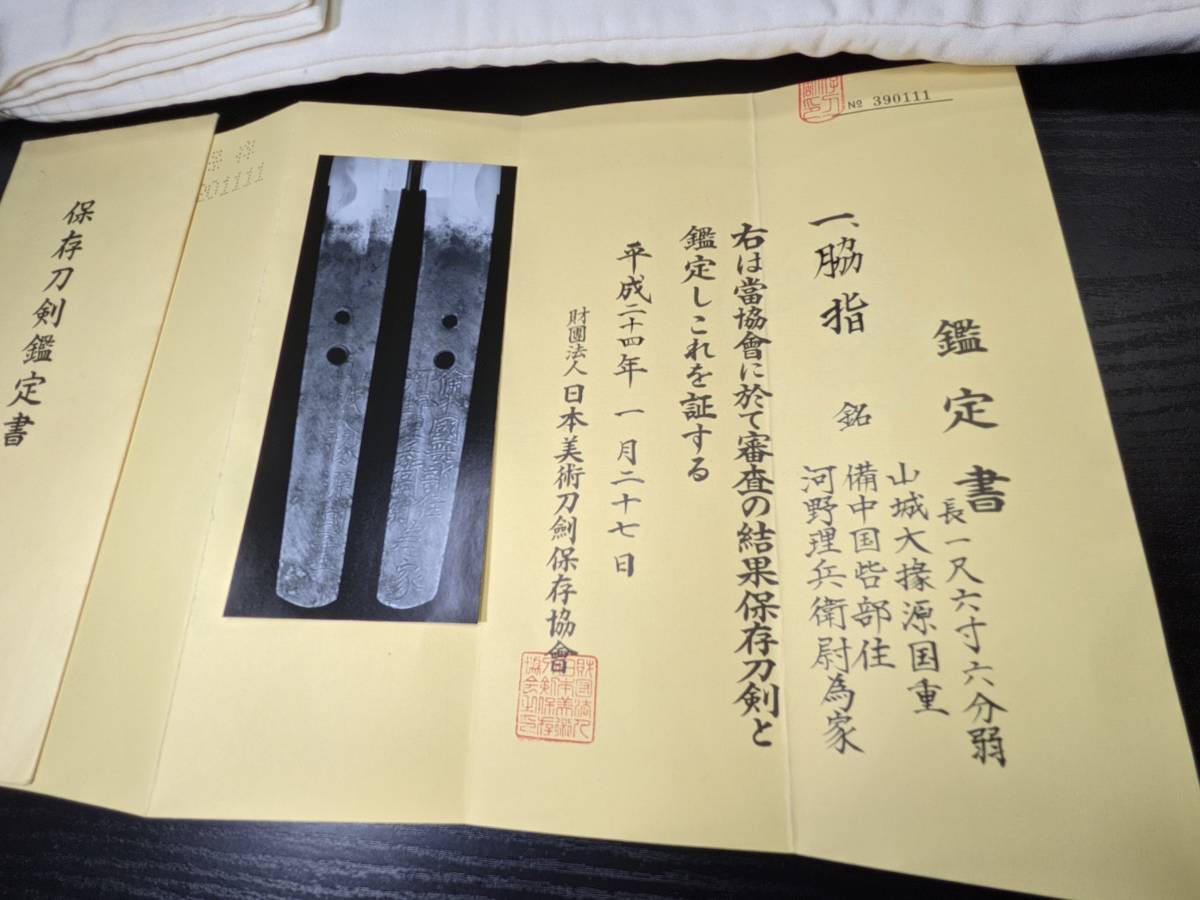 No 390111
鑑定書
一、脇指
長一尺六寸六分弱
銘
山城大掾源国重
備中国呰部住
河野理兵衛尉為家
右は當協會に於て審査の結果保存刀剣と
鑑定しこれを証する
平成二十四年一月二十七日
財團法人 日本美術刀劍保存協會
保存刀剣鑑定書